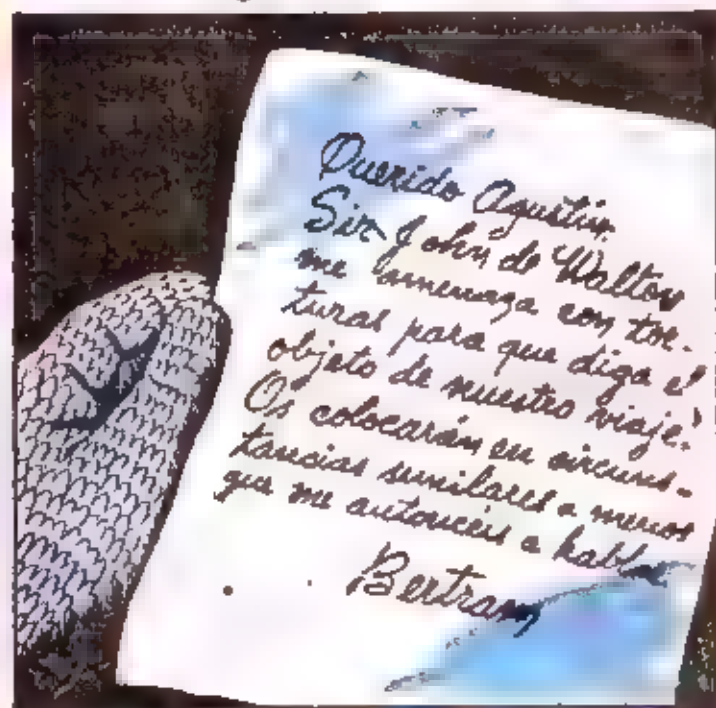 Querido Agustín.
Sir John de Walton
me amenaza con tor-
turas para que diga el
objeto de nuestro viaje.
Os colocarán en circuns-
tancias similares a menos
que me autoricéis a hablar
Bertram